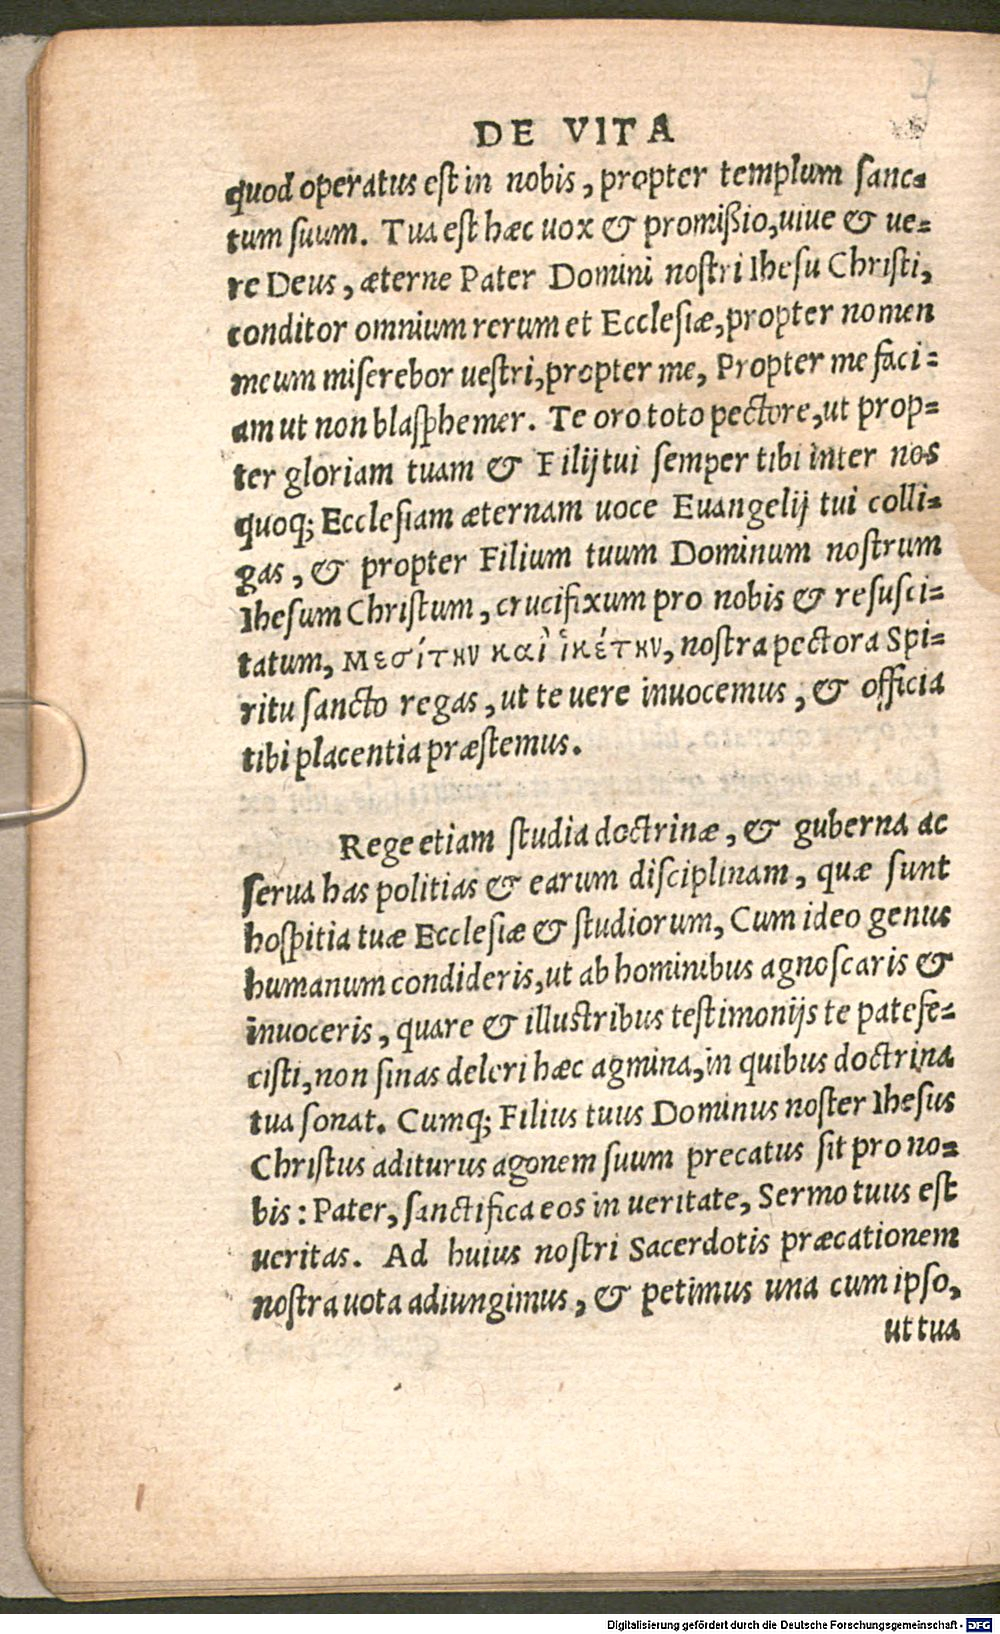 DE VITA
quod operatus est in nobis, propter templum sanc-
tum suum. Tua est hæc uox & promißio, uiue & ue-
re Deus, æterne Pater Domini nostri Ihesu Christi,
conditor omnium rerum et Ecclesiæ, propter nomen
meum miserebor uestri, propter me, Propter me faci-
am ut non blasphemer. Te oro toto pectore, ut prop-
ter gloriam tuam & Filij tui semper tibi inter nos
quoq; Ecclesiam æternam uoce Euangelij tui colli-
gas, & propter Filium tuum Dominum nostrum
Ihesum Christum, crucifixum pro nobis & resusci-
tatum, μεσίτην καὶ ἱκέτην, nostra pectora Spi-
ritu sancto regas, ut te uere inuocemus, & officia
tibi placentia præstemus.
Rege etiam studia doctrinæ, & guberna ac
serua has politias & earum disciplinam, quæ sunt
hospitia tuæ Ecclesiæ & studiorum, Cum ideo genus
humanum condideris, ut ab hominibus agnoscaris &
inuoceris, quare & illustribus testimonijs te patefe-
cisti, non sinas deleri hæc agmina, in quibus doctrina
tua sonat. Cumq; Filius tuus Dominus noster Ihesus
Christus aditurus agonem suum precatus sit pro no-
bis: Pater, sanctifica eos in ueritate, Sermo tuus est
ueritas. Ad huius nostri Sacerdotis præcationem
nostra uota adiungimus, & petimus una cum ipso,
ut tua
Digitalisierung gefördert durch die Deutsche Forschungsgemeinschaft - DFG